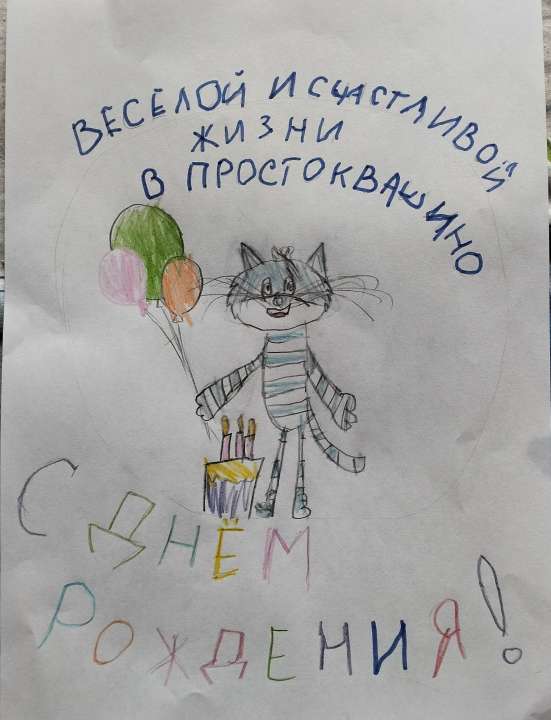 ВЕСЕЛОЙ И СЧАСТЛИВОЙ
ЖИЗНИ
В ПРОСТОКВАШИНО
С ДНЁМ
РОЖДЕНИЯ!